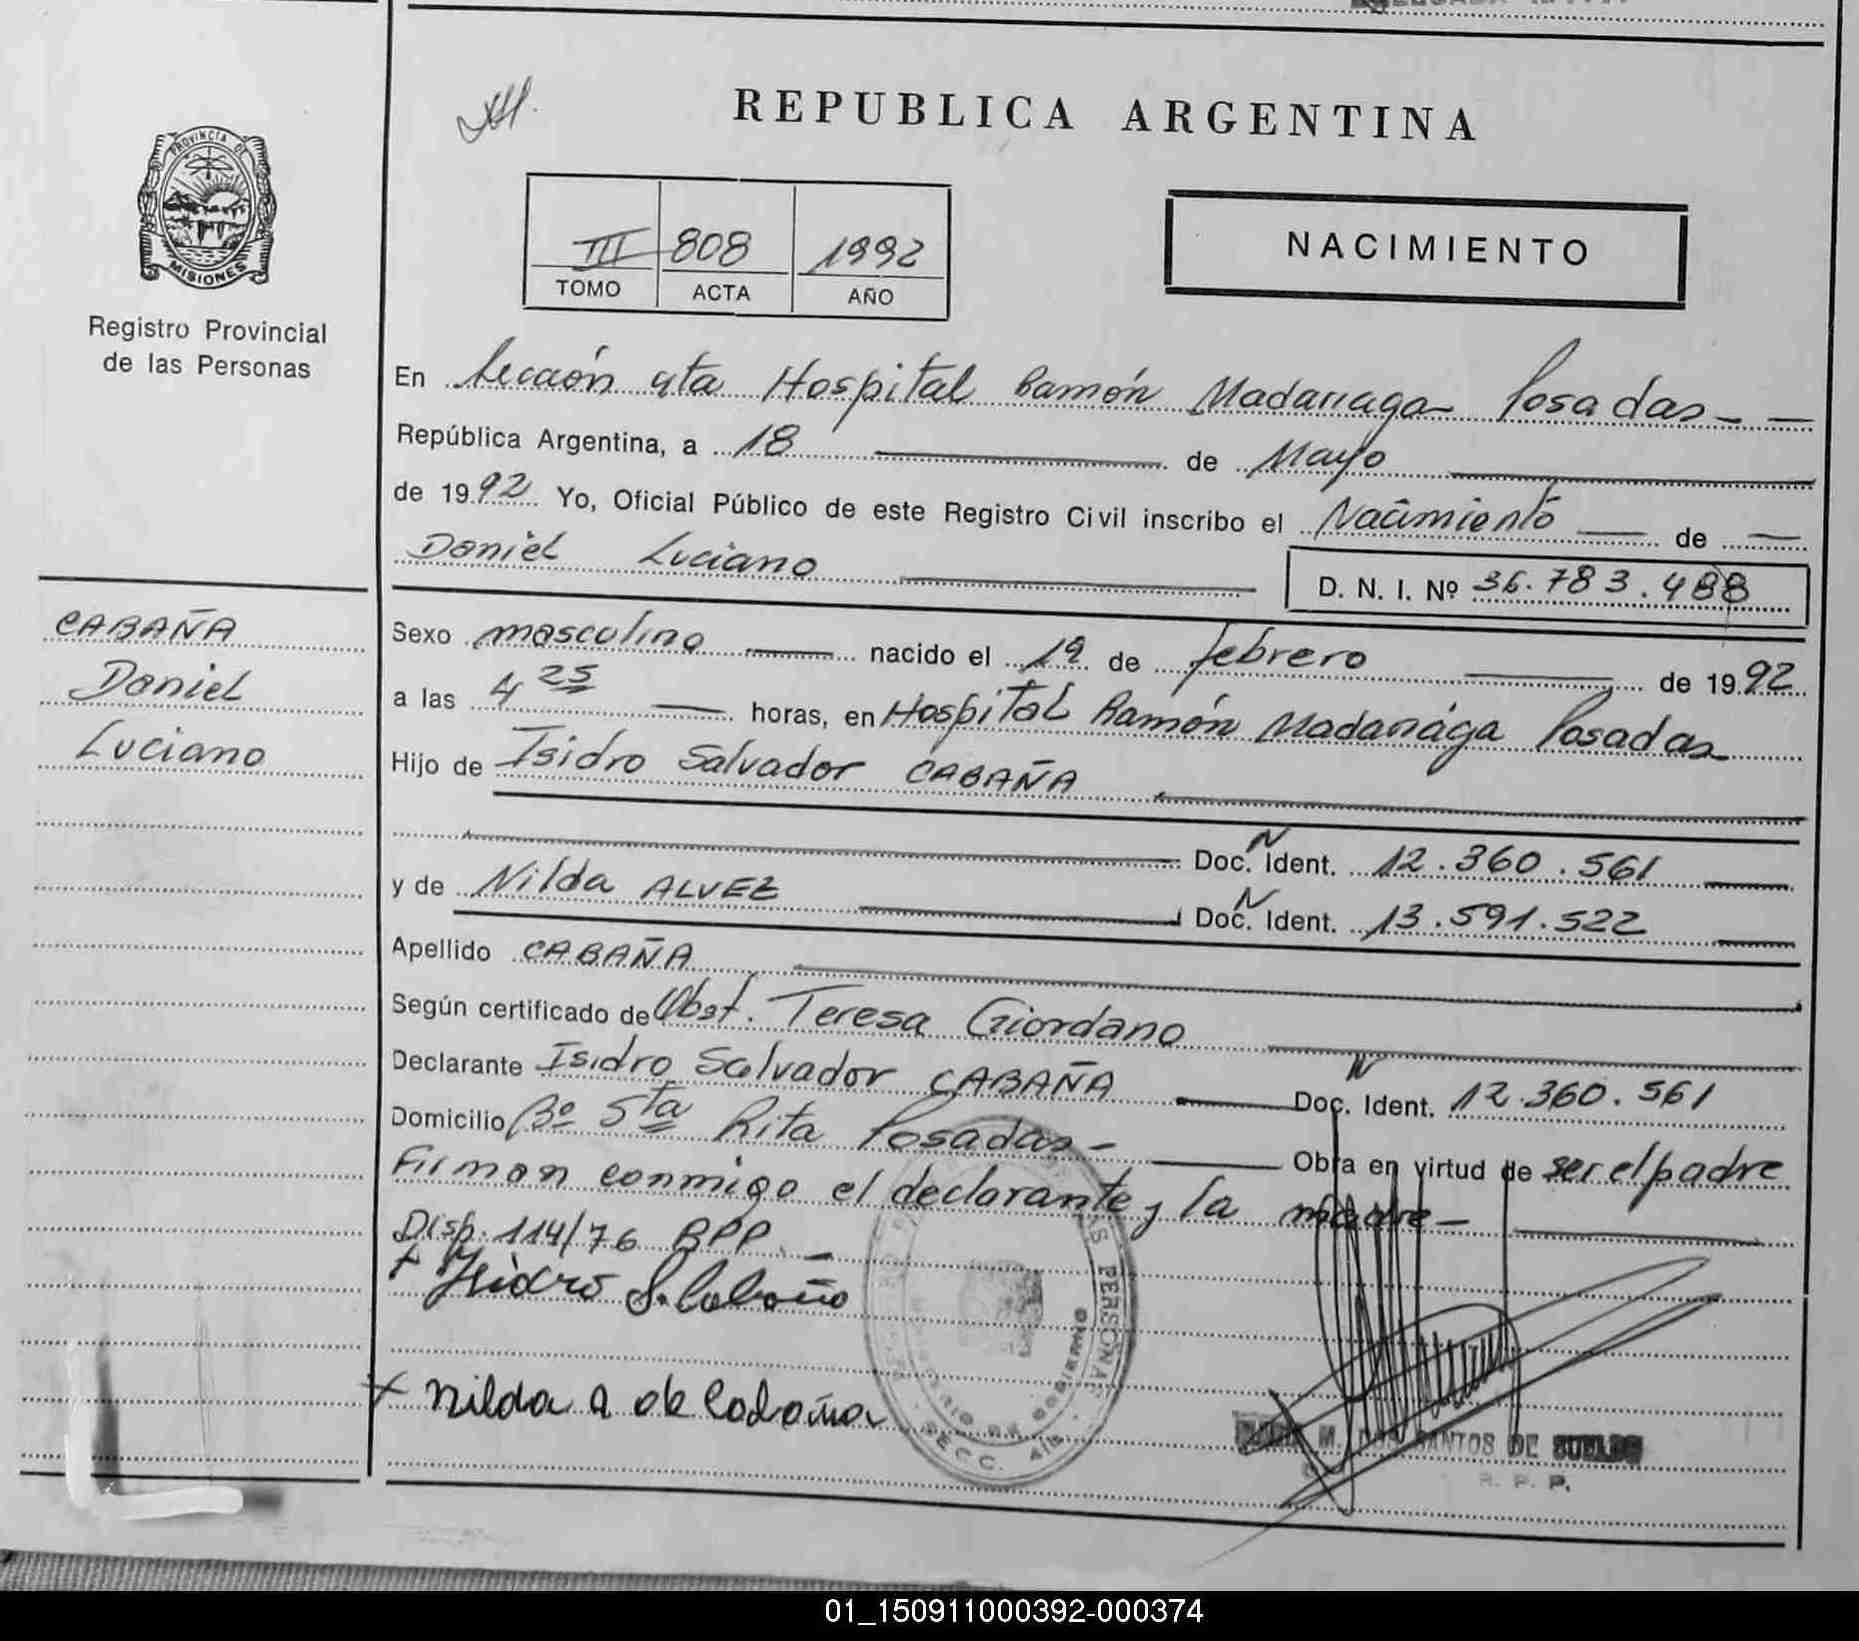 REPUBLICA ARGENTINA
PROVINCIA DE
MISIONES
Registro Provincial
de las Personas
III 808 1992
TOMO ACTA AÑO
NACIMIENTO
En Sección 4ta Hospital Ramón Madariaga Posadas
República Argentina, a 18 de Mayo
de 1992 Yo, Oficial Público de este Registro Civil inscribo el Nacimiento de
Daniel Luciano
D. N. I. Nº 36.783.488
CABAÑA
Daniel
Luciano
Sexo masculino nacido el 19 de febrero de 1992
a las 4 25 horas, en Hospital Ramón Madariaga Posadas
Hijo de Isidro Salvador CABAÑA
Doc. N Ident. 12.360.561
y de Nilda ALVEZ Doc. N Ident. 13.591.522
Apellido CABAÑA
Según certificado de Obst. Teresa Giordano
Declarante Isidro Salvador CABAÑA Doc. N Ident. 12.360.561
Domicilio Bº Sta Rita Posadas- Obra en virtud de ser el padre
Firman conmigo el declarante y la madre-
Disp. 114/76 RPP. -
x Isidro S. Cabaña
x Nilda A de Cabaña
AS PERSONAS
MINISTERIO DE GOBIERNO
SECC. 4ta
M. DOS SANTOS DE SUELDO
R. P. P.
01_150911000392-000374